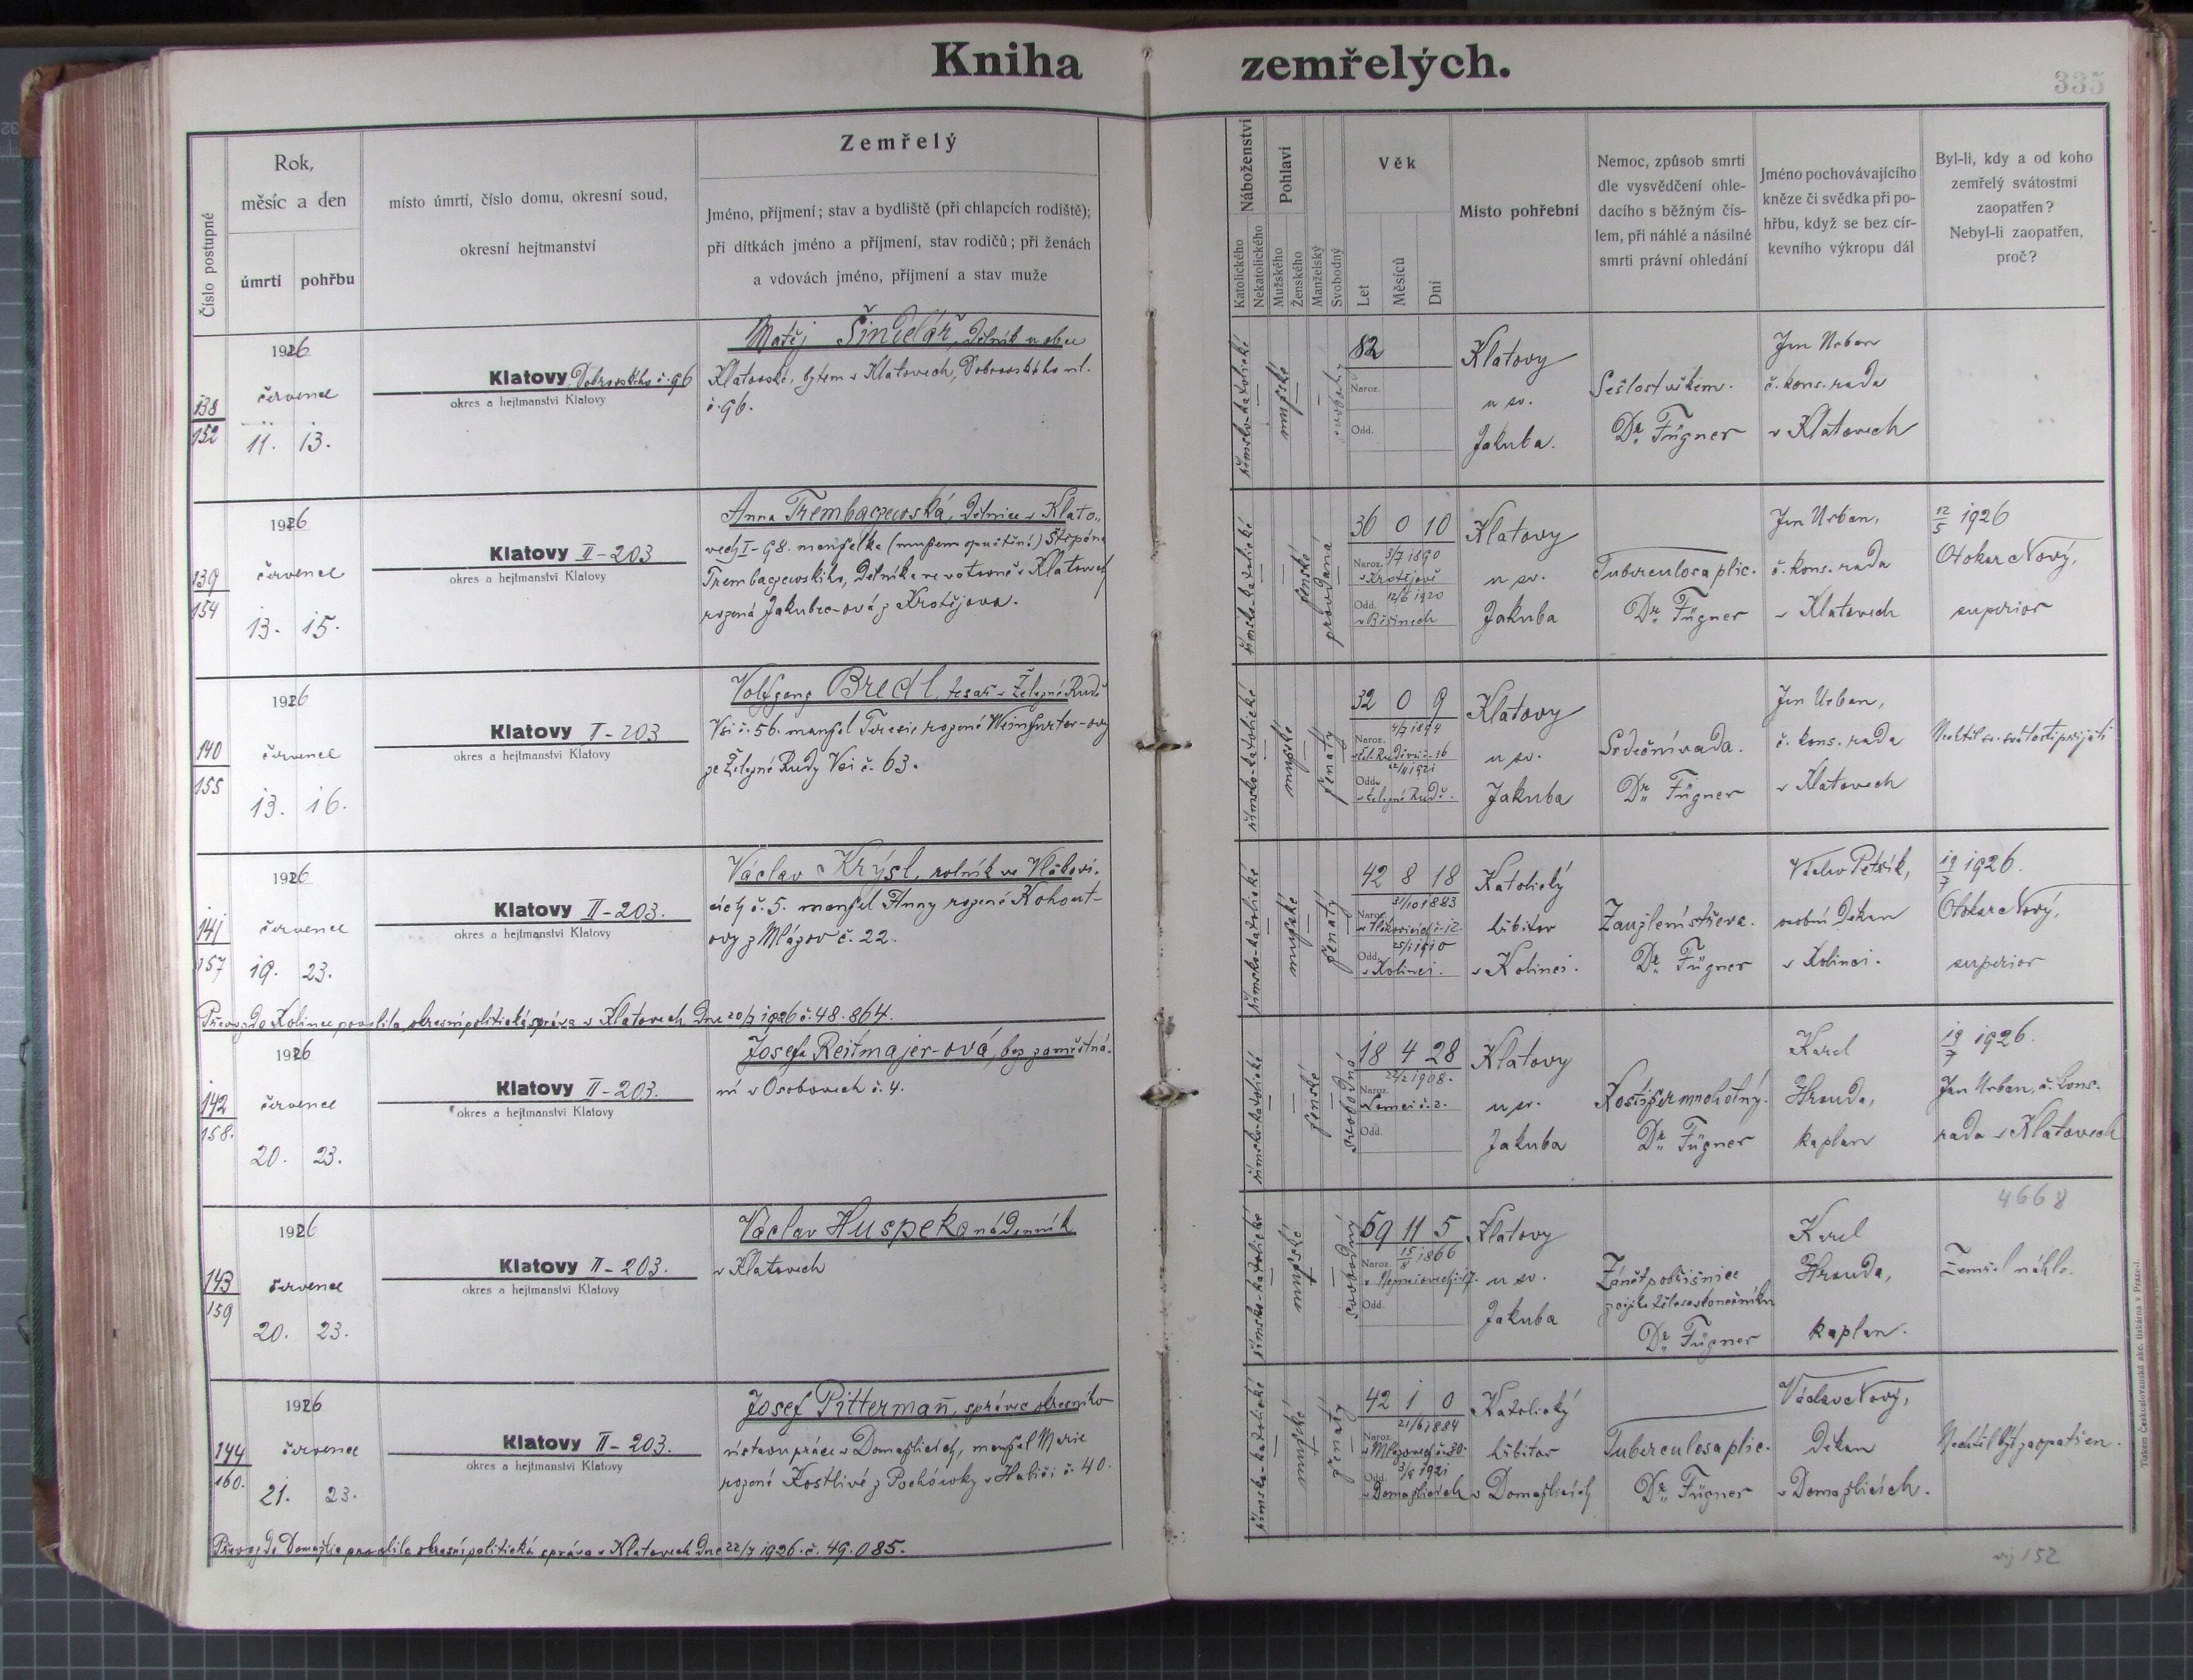 Kniha zemřelých.
335
Číslo postupné
Rok,
měsíc a den
úmrtí
pohřbu
místo úmrtí, číslo domu, okresní soud,
okresní hejtmanství
Zemřelý
Jméno, příjmení; stav a bydliště (při chlapcích rodiště);
při dítkách jméno a příjmení, stav rodičů; při ženách
a vdovách jméno, příjmení a stav muže
Náboženství
Katolického
Nekatolického
Pohlaví
Mužského
Ženského
Manželský
Svobodný
Věk
Let
Měsíců
Dní
Místo pohřební
Nemoc, způsob smrti
dle vysvědčení ohle-
dacího s běžným čís-
lem, při náhlé a násilné
smrti právní ohledání
Jméno pochovávajícího
kněze či svědka při po-
hřbu, když se bez cír-
kevního výkropu dál
Byl-li, kdy a od koho
zemřelý svátostmi
zaopatřen?
Nebyl-li zaopatřen,
proč?
138
152
1926
červenec
11. 13.
Klatovy Dobrovského č. 96
okres a hejtmanství Klatovy
Matěj Šindelář, dělník v obci
Klatovské, bytem v Klatovech, Dobrovského ul.
č. 96.
římsko-katolické
mužské
82
Naroz.
Odd.
Klatovy
u sv.
Jakuba.
Sešlost věkem.
Dr. Fügner
Jan Urban
č. kons. rada
v Klatovech
139
154
1926
červenec
13. 15.
Klatovy II-203
okres a hejtmanství Klatovy
Anna Trembaczewská, dělnice v Klato-
vech I-98. manželka (mužem opuštěná) Štěpána
Trembaczewského, dělníka ve v Klatovech
rozená Jakubec-ová z Krotějova.
římsko-katolické
ženské
provdaná
36 0 10
Naroz. 3/7 1890
v Krotějově
Odd. 12/6 1920
v Běšinech
Klatovy
u sv.
Jakuba
Tuberculosa plic.
Dr. Fügner
Jan Urban,
č. kons. rada
v Klatovech
12/5 1926
Otokar Nový,
superior
140
155
1926
červenec
13. 16.
Klatovy I-203
okres a hejtmanství Klatovy
Volfgang Bredl, tesař v Železné Rudě
Vsi č. 56. manžel Terezie rozené Weinfurter-ovy
ze Železné Rudy Vsi č. 63.
římsko-katolické
mužské
ženatý
32 0 9
Naroz. 4/7 1894
Odd. 22/11 1921
v Železné Rudě.
Klatovy
u sv.
Jakuba
Srdeční vada.
Dr. Fügner
Jan Urban,
č. kons. rada
v Klatovech
Nechtěl sv. svátosti přijati
141
157
1926
červenec
19. 23.
Klatovy II-203.
okres a hejtmanství Klatovy
Václav Krýsl, rolník ve Vlčkovi-
cích č. 5. manžel Anny rozené Kohout-
ovy z Mlázov č. 22.
Převoz do Kolince povolila okresní politická správa v Klatovech dne 20/7 1926 č. 48.864.
římsko-katolické
mužské
ženatý
42 8 18
Naroz. 31/10 1883
ve Vlčkovicích č. 12.
Odd. 25/1 1910
v Kolinci.
Katolický
hřbitov
v Kolinci.
Zauzlení střeva.
Dr. Fügner
Václav Petřík,
osobní děkan
v Kolinci.
19/7 1926.
Otokar Nový,
superior
142
158.
1926
červenec
20. 23.
Klatovy II-203.
okres a hejtmanství Klatovy
Josefa Reitmajer-ová, bez zaměstná-
ní v Osobovech č. 4.
římsko-katolické
ženské
svobodná
18 4 28
Naroz. 22/2 1908.
Nemci č. 2.
Odd.
Klatovy
u sv.
Jakuba
Kostižer mnohotný.
Dr. Fügner
Karel
Hrouda,
kaplan
19/7 1926.
Jan Urban, č. kons.
rada v Klatovech
143
159
1926
červenec
20. 23.
Klatovy II-203.
okres a hejtmanství Klatovy
Václav Huspeka nádenník
v Klatovech
římsko-katolické
mužské
svobodný
59 11 5
Naroz. 15/8 1866
Odd.
Klatovy
u sv.
Jakuba
Zánět pobřišnice
Dr. Fügner
Karel
Hrouda,
kaplan.
4668
Zemřel náhle.
144
160.
1926
červenec
21. 23.
Klatovy II-203.
okres a hejtmanství Klatovy
Josef Pittermañ, správce okresního
ústavu práce v Domažlicích, manžel Marie
rozené Kostlivé z Pochówky v Haliči č. 40.
Převoz do Domažlic povolila okresní politická správa v Klatovech dne 22/7 1926. č. 49.085.
římsko-katolické
mužské
ženatý
42 1 0
Naroz. 21/6 1884
v Mlázovech č. 30.
Odd. 3/9 1921
v Domažlicích
Katolický
hřbitov
v Domažlicích
Tuberculosa plic.
Dr. Fügner
Václav Nový,
děkan
v Domažlicích.
Nechtěl být zaopatřen.
viz 152
Tiskem Českoslovanská akc. tiskárna v Praze-I